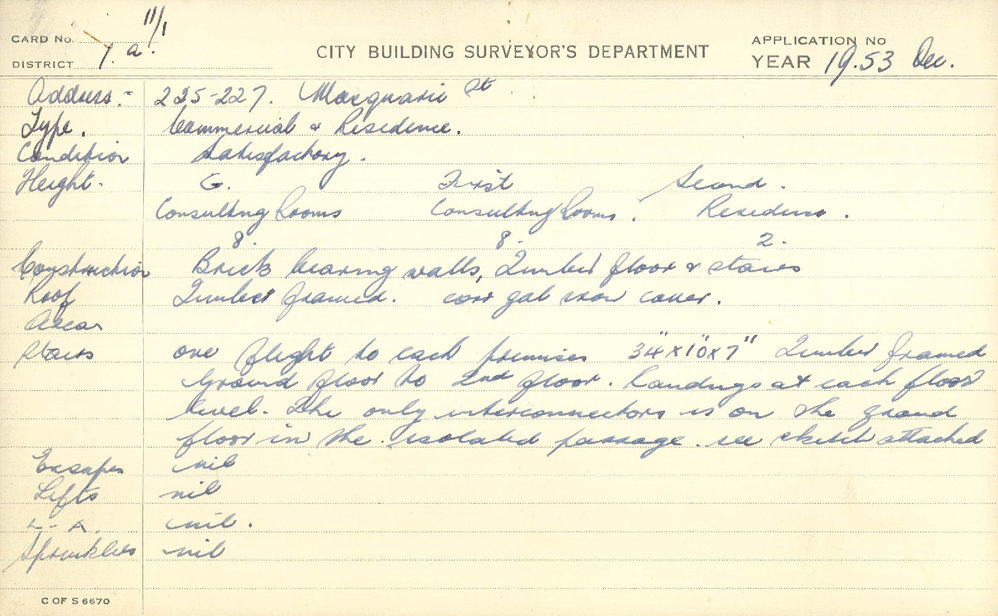 CARD No. 11/1
DISTRICT 7. a.
CITY BUILDING SURVEYOR'S DEPARTMENT
APPLICATION No
YEAR 1953 Dec.
Address:- 225-227. Macquarie St.
Type. Commercial & Residence.
Condition Satisfactory.
Height. G. First Second.
Consulting Rooms Consulting Rooms. Residence.
8. 8. 2.
Construction Brick bearing walls, Timber floor & stairs
Roof Timber framed. corr gal iron cover.
Area
Stairs one flight to each premises 34"x10"x7" Timber framed
Ground floor to 2nd floor. Landings at each floor
level. The only interconnectors is on the ground
floor in the isolated passage. see sketch attached
Escapes nil
Lifts nil
L-A. nil.
Sprinklers nil
C OF S 6670